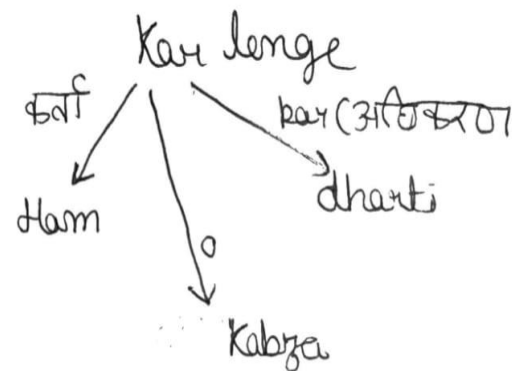 Kar lenge
कर्ता
par (अधिकरण
Ham
dharti
0
Kabza